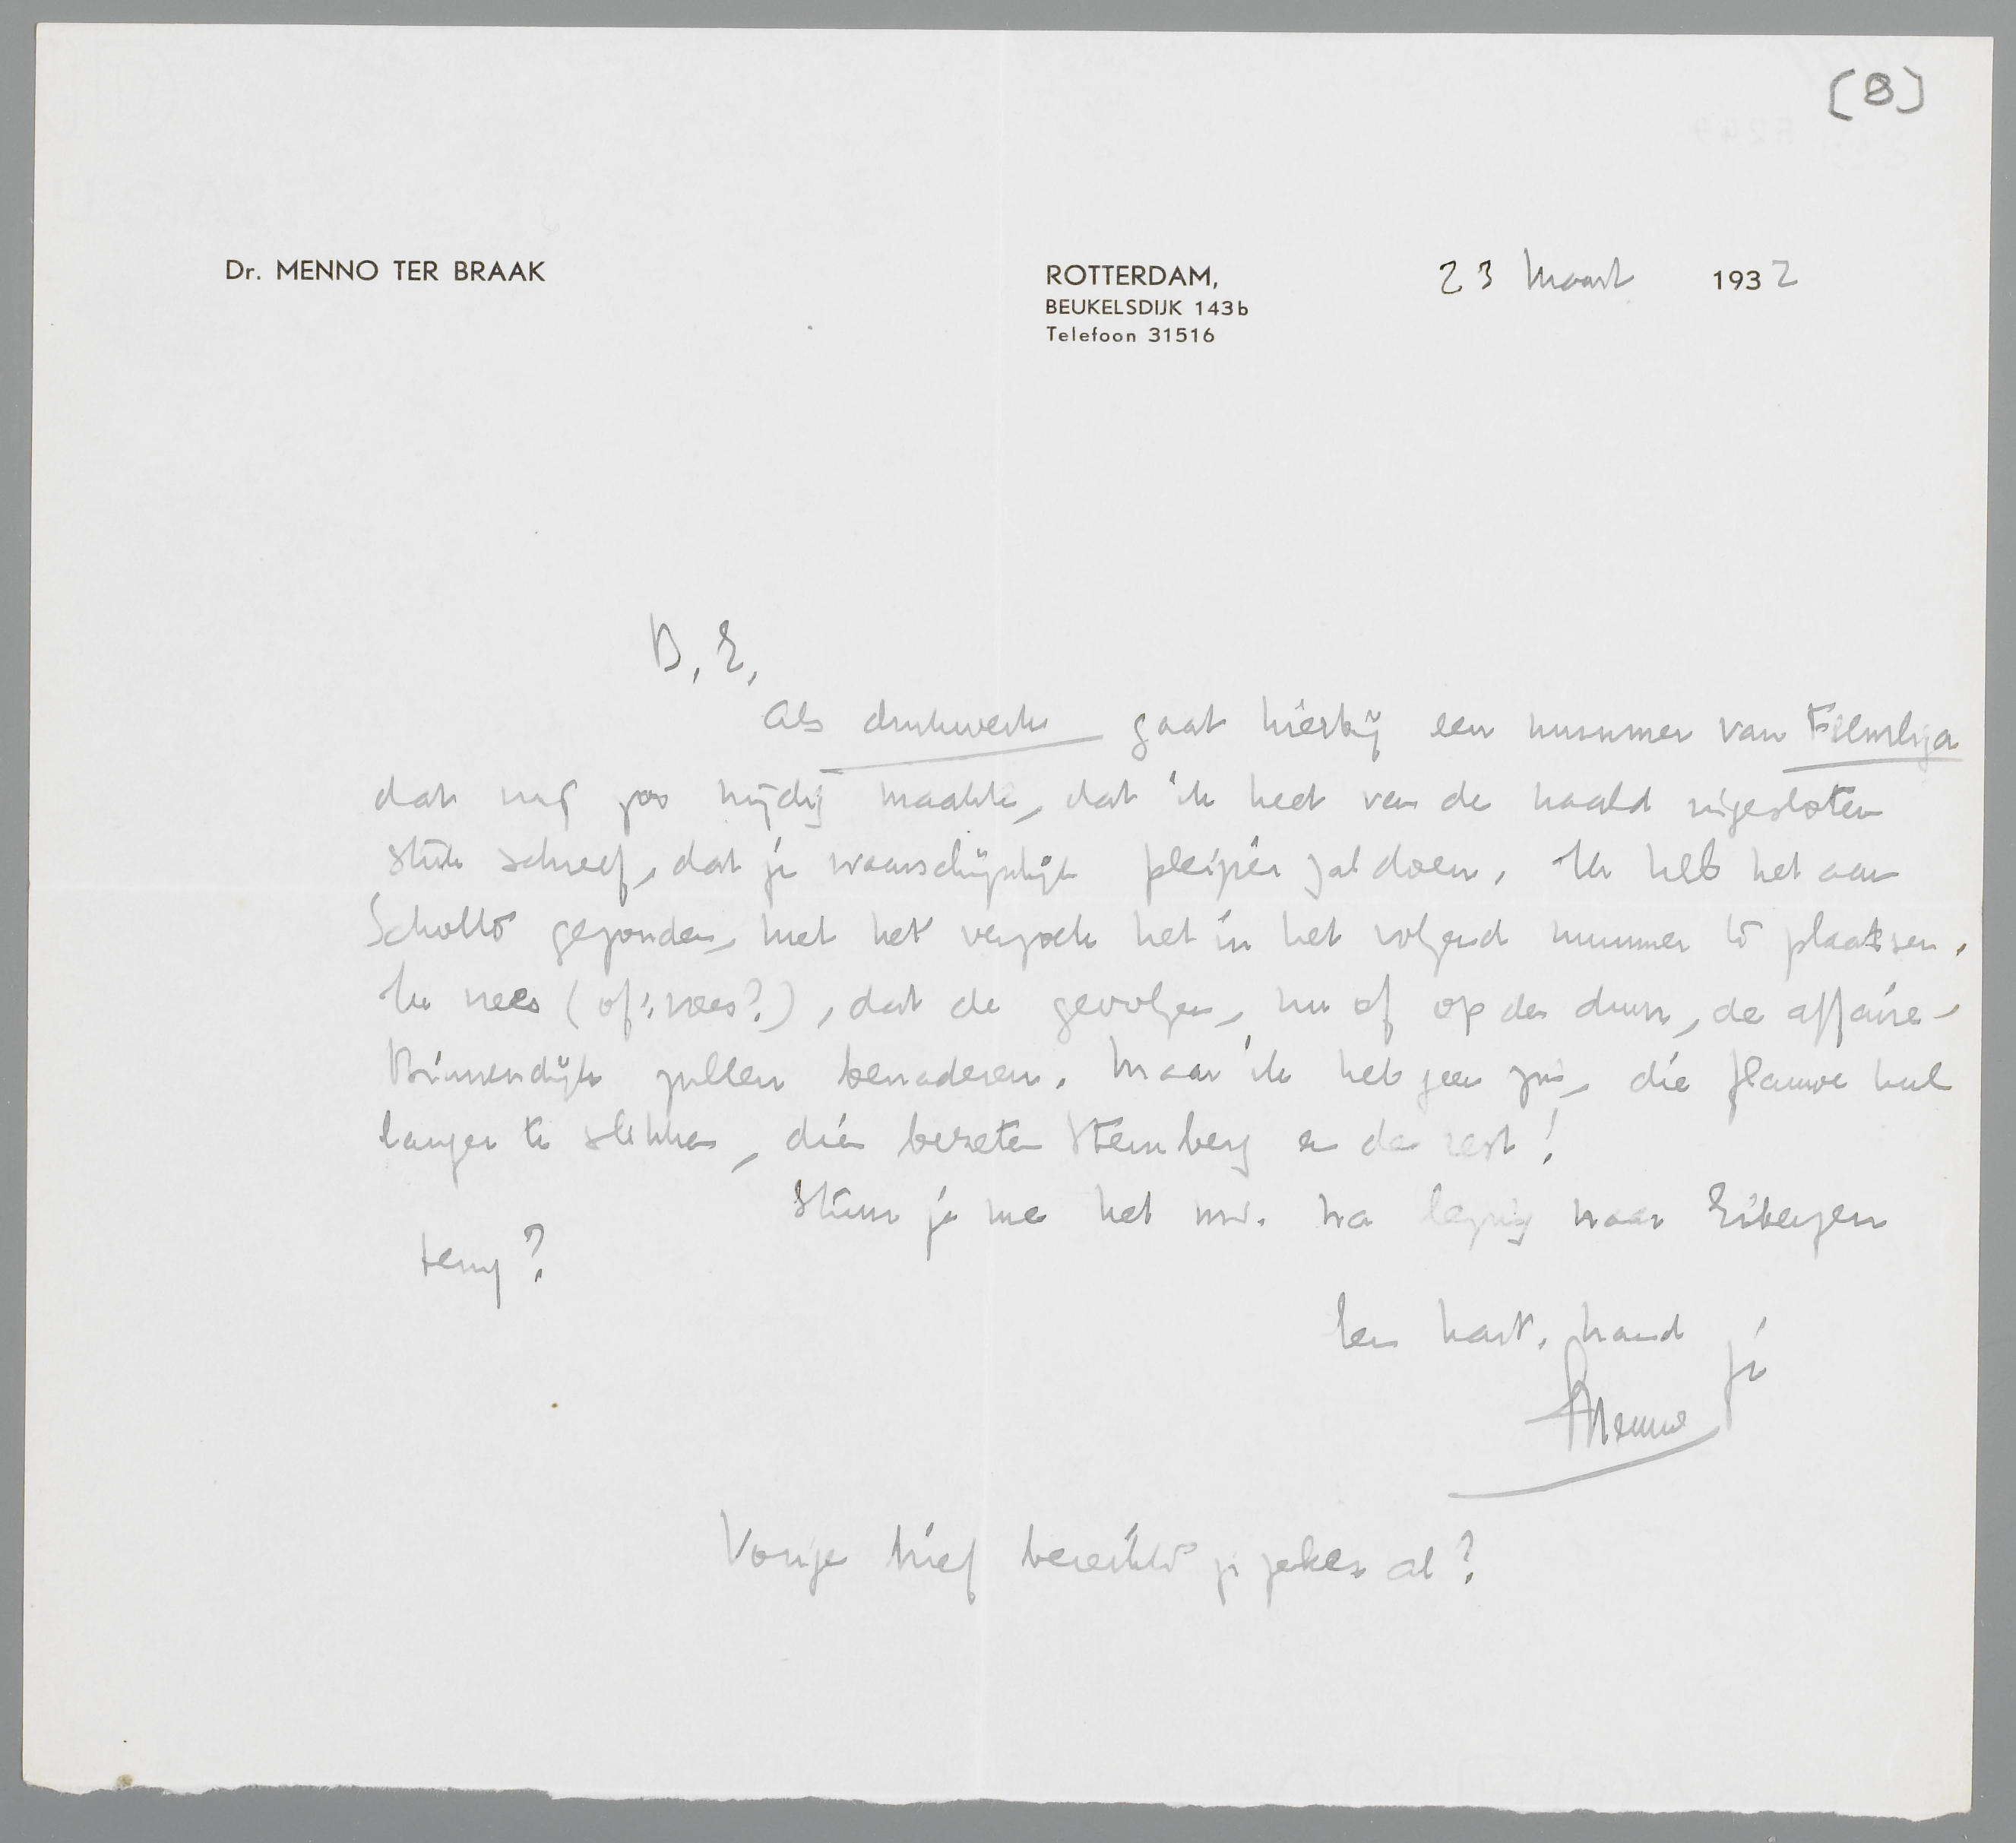 [8]
Dr. MENNO TER BRAAK
ROTTERDAM, 23 Maart 1932
BEUKELSDIJK 143b
Telefoon 31516
D. E,
Als drukwerk gaat hierbij een nummer van Filmliga
dat mij zoo nijdig maakte, dat ik heet van de naald ingesloten
stuk schreef, dat je waarschijnlijk pleizier zal doen. Ik heb het aan
Scholte gezonden, met het verzoek het in het volgend nummer te plaatsen.
Ik vrees (of: vrees?), dat de gevolgen, nu of op den duur, de affaire-
Binnendijk zullen benaderen. Maar ik heb geen zin, die flauwe kul
langer te slikken, dien bezeten Sternberg en de rest!
Stuur je me het nr. na lezing naar Eibergen
terug?
Een hart. hand
je
Menno
Vorige brief bereikte je zeker al?